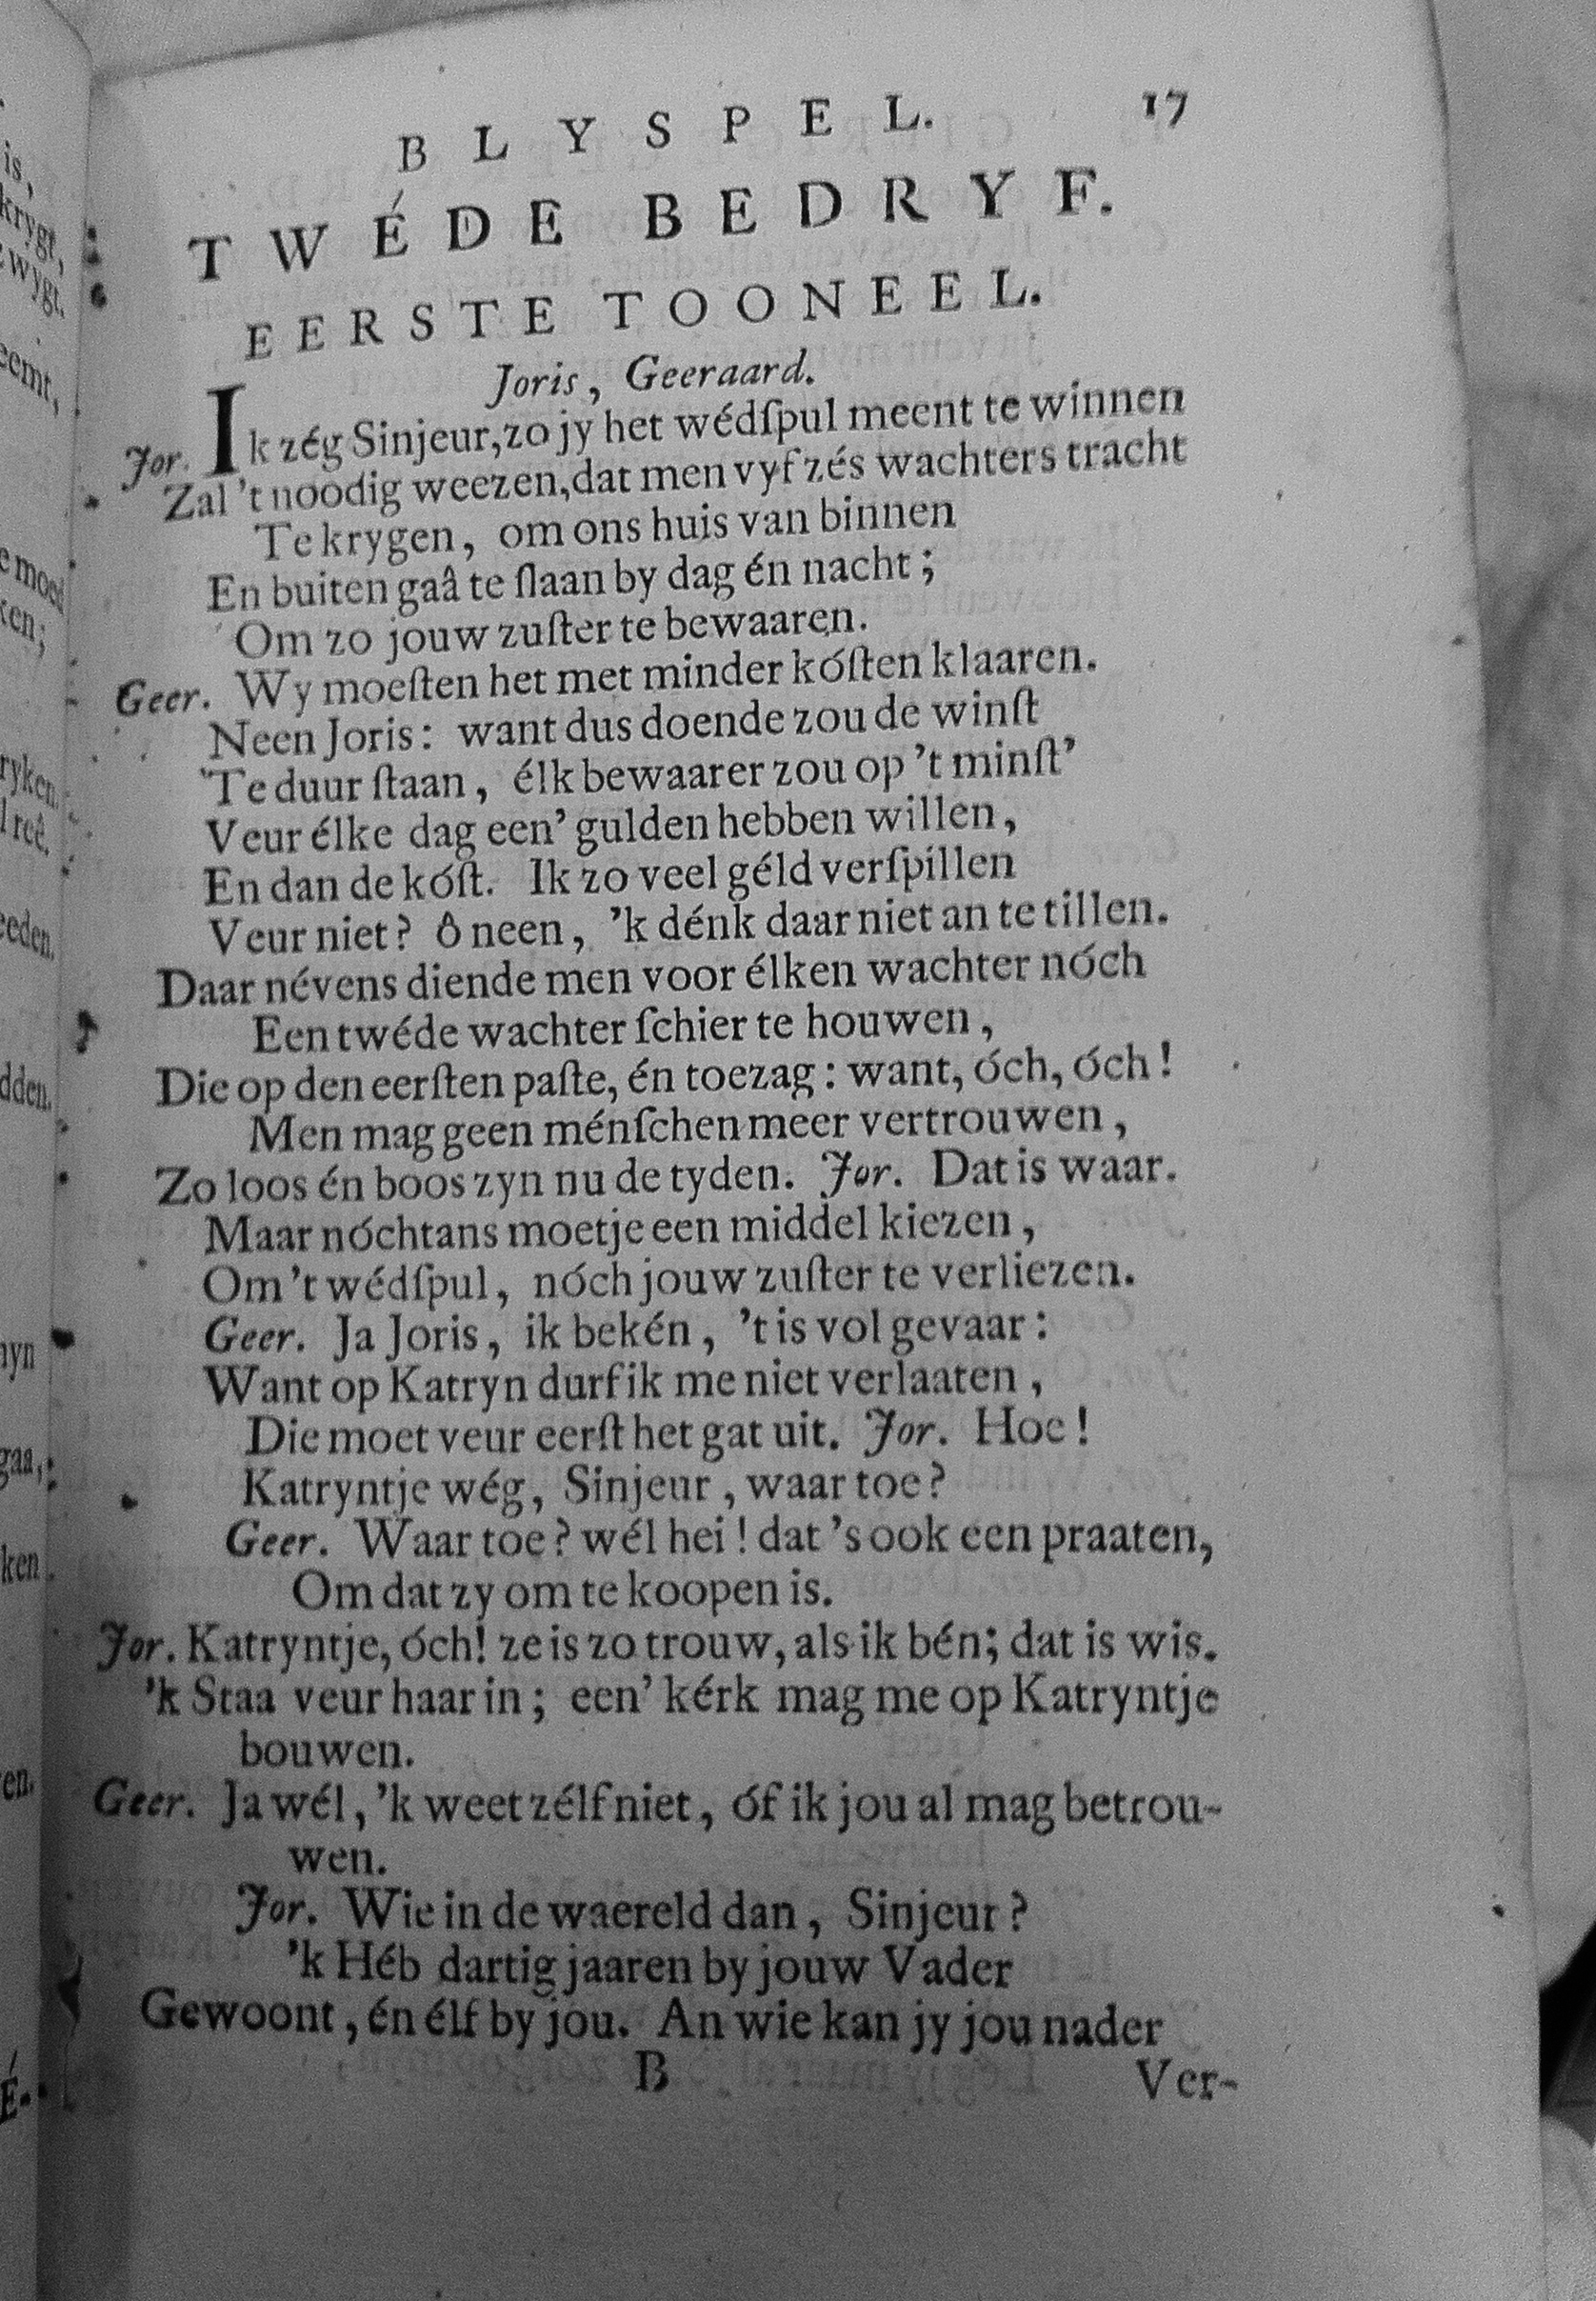 BLYSPEL. 17
TWÉDE BEDRYF.
EERSTE TOONEEL.
Joris, Geeraard.
Jor. Ik zég Sinjeur, zo jy het wédſpul meent te winnen
Zal 't noodig weezen, dat men vyf zés wachters tracht
Te krygen, om ons huis van binnen
En buiten gaâ te ſlaan by dag én nacht;
Om zo jouw zuſter te bewaaren.
Geer. Wy moeſten het met minder kóſten klaaren.
Neen Joris: want dus doende zou de winſt
Te duur ſtaan, élk bewaarer zou op 't minſt'
Veur élke dag een' gulden hebben willen,
En dan de kóſt. Ik zo veel géld verſpillen
Veur niet? ô neen, 'k dénk daar niet an te tillen.
Daar névens diende men voor élken wachter nóch
Een twéde wachter ſchier te houwen,
Die op den eerſten paſte, én toezag: want, óch, óch!
Men mag geen ménſchen meer vertrouwen,
Zo loos én boos zyn nu de tyden. Jor. Dat is waar.
Maar nóchtans moetje een middel kiezen,
Om 't wédſpul, nóch jouw zuſter te verliezen.
Geer. Ja Joris, ik bekén, 't is vol gevaar:
Want op Katryn durf ik me niet verlaaten,
Die moet veur eerſt het gat uit. Jor. Hoe!
Katryntje wég, Sinjeur, waar toe?
Geer. Waar toe? wél hei! dat 's ook een praaten,
Om dat zy om te koopen is.
Jor. Katryntje, óch! ze is zo trouw, als ik bén; dat is wis.
'k Staa veur haar in; een' kérk mag me op Katryntje
bouwen.
Geer. Ja wél, 'k weet zélf niet, óf ik jou al mag betrou-
wen.
Jor. Wie in de waereld dan, Sinjeur?
'k Héb dartig jaaren by jouw Vader
Gewoont, én élf by jou. An wie kan jy jou nader
B Ver-
is,
krygt,
moed
ryken.
dden.
gaa,
ken
en.
É-